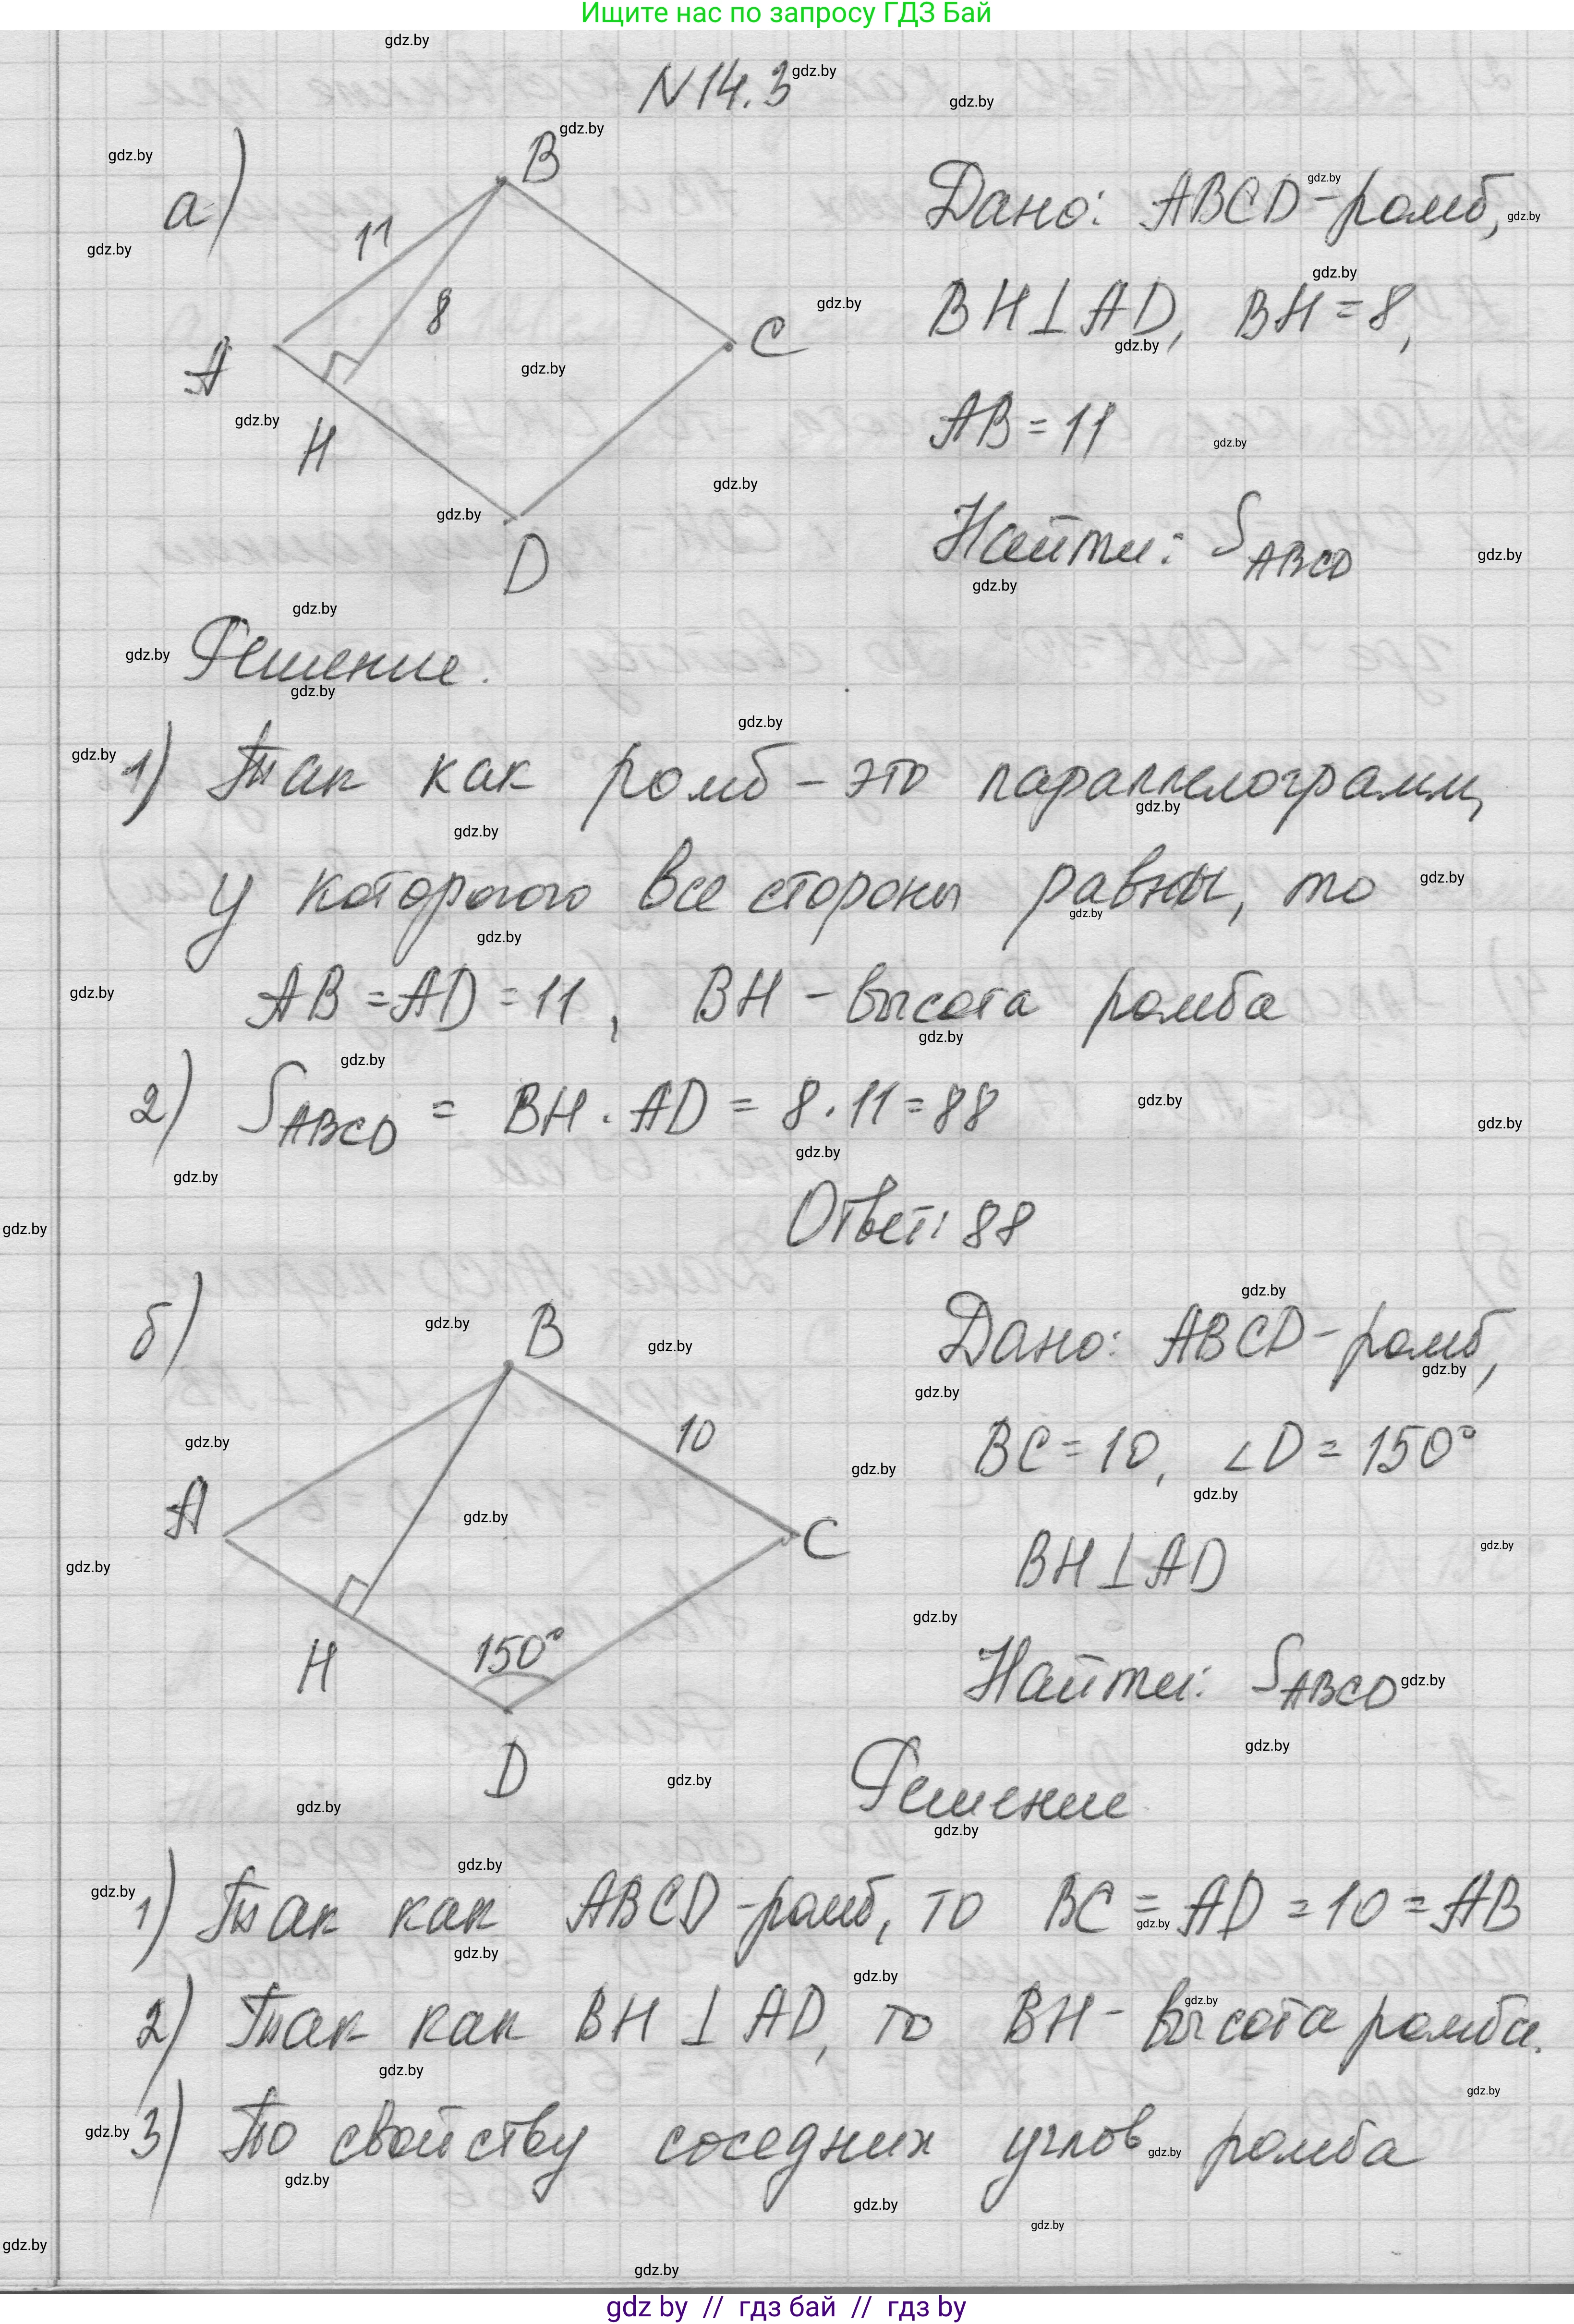 Ищите нас по запросу ГДЗ Бай
N14.3
а)
B
11
8
A
C
H
D
Дано: ABCD - ромб,
BH⊥AD, BH = 8,
AB = 11
Найти: S ABCD
Решение.
1) Так как ромб - это параллелограмм,
у которого все стороны равны, то
AB = AD = 11, BH - высота ромба
2) S ABCD = BH · AD = 8 · 11 = 88
Ответ: 88
б)
B
10
A
C
H
150°
D
Дано: ABCD - ромб,
BC = 10, ∠D = 150°
BH⊥AD
Найти: S ABCD
Решение
1) Так как ABCD - ромб, то BC = AD = 10 = AB
2) Так как BH ⊥ AD, то BH - высота ромба.
3) По свойству соседних углов ромба
gdz.by
gdz by // гдз бай // гдз by